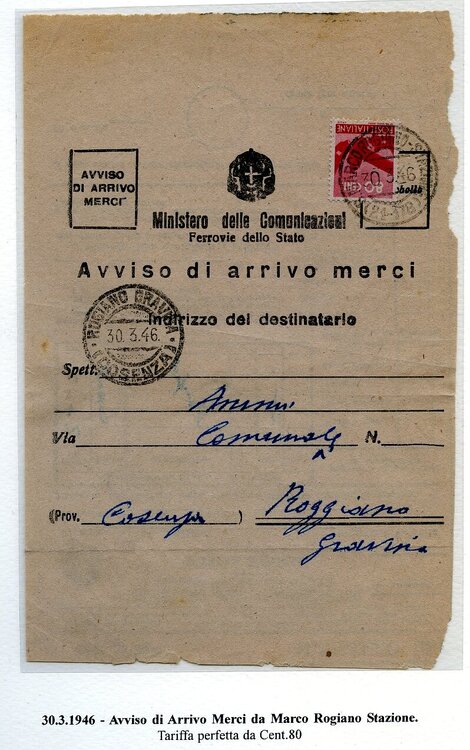 POSTE ITALIANE
80 CENT
30.3.46
(21-378)
AVVISO
DI ARRIVO
MERCI
Ministero delle Comunicazioni
Ferrovie dello Stato
Avviso di arrivo merci
Indirizzo del destinatario
ROGIANO GRAVINA
30.3.46.
(COSENZA)
Spett.
Via Comunale N.
(Prov. Cosenza ) Roggiano
Gravina
30.3.1946 - Avviso di Arrivo Merci da Marco Rogiano Stazione.
Tariffa perfetta da Cent.80